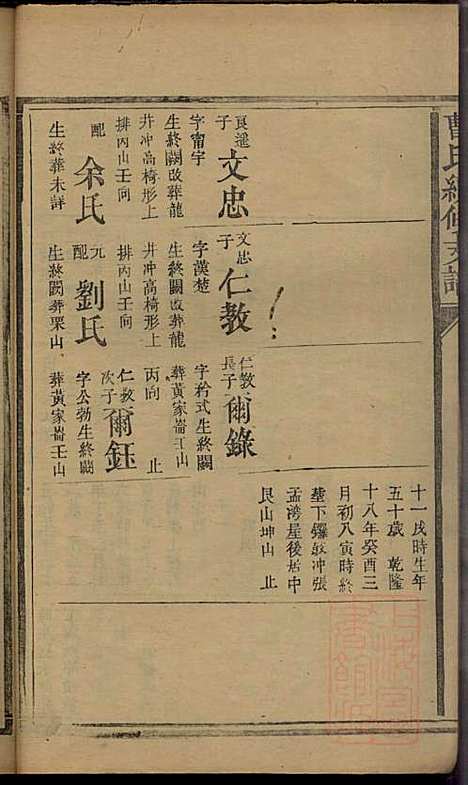 曹氏續修支譜
良遥
子
文忠
字甯宇
生終闕改葬龍
井冲高椅形上
排丙山壬向
配
余氏
生終葬未詳
文忠
子
仁教
字漢楚
生終闕改葬龍
井冲高椅形上
排丙山壬向
元
配
劉氏
生終闕葬栗山
仁教
長子
爾錄
字矜式生終闕
葬黃家崙壬山
丙向 止
仁教
次子
爾鈺
字公勃生終闕
葬黃家崙壬山
十一戌時生年
五十歲 乾隆
十八年癸酉三
月初八寅時終
塟下鑼鼓冲張
孟湾屋後居中
艮山坤山 止